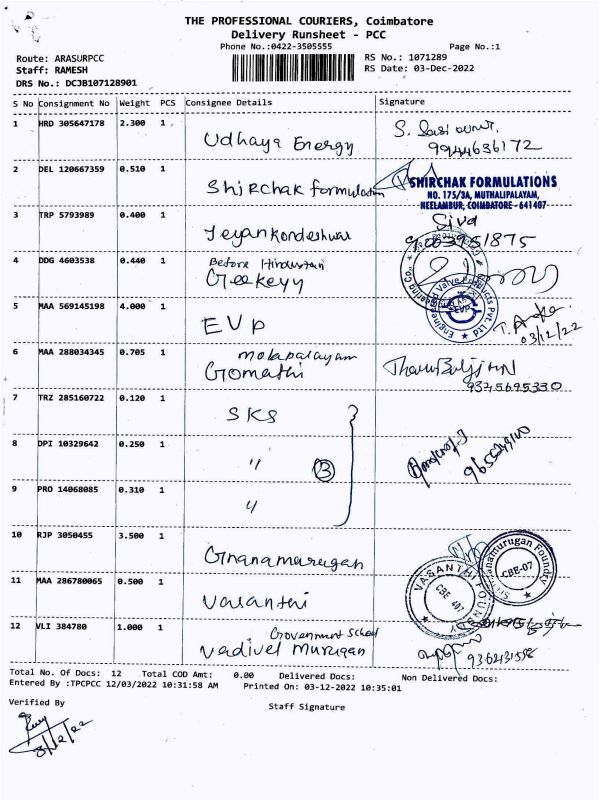 THE PROFESSIONAL COURIERS, Coimbatore
Delivery Runsheet - PCC
Phone No.:0422-3505555 Page No.:1
Route: ARASURPCC RS No.: 1071289
Staff: RAMESH RS Date: 03-Dec-2022
DRS No.: DCJB107128901
S No Consignment No Weight PCS Consignee Details Signature
1 HRD 305647178 2.300 1
Udhaya Energy
9944636172
2 DEL 120667359 0.510 1
Shirchak formulation
SHIRCHAK FORMULATIONS
NO. 175/3A, MUTHALIPALAYAM,
NEELAMBUR, COIMBATORE - 641407
3 TRP 5793989 0.400 1
Jeyankondeshwar
Siva
9003951875
4 DDG 4603538 0.440 1
Before Hindustan
Geekeyy
5 MAA 569145198 4.000 1
EVP
Engineered Valve Products Pvt. Ltd
EVP
03/12/22
6 MAA 288034345 0.705 1
Gomathi
9345695330
7 TRZ 285160722 0.120 1
SKS
8 DPI 10329642 0.250 1
" 3
9 PRO 14068085 0.310 1
"
10 RJP 3050455 3.500 1
Gnanamurugan
CBE-07
11 MAA 286780065 0.500 1
Vasanthi
VASANTHI FOUNDRY
CBE 407
12 VLI 384780 1.000 1
Government School
Vadivel Murugan
Total No. Of Docs: 12 Total COD Amt: 0.00 Delivered Docs: Non Delivered Docs:
Entered By :TPCPCC 12/03/2022 10:31:58 AM Printed On: 03-12-2022 10:35:01
Verified By Staff Signature
3/12/22